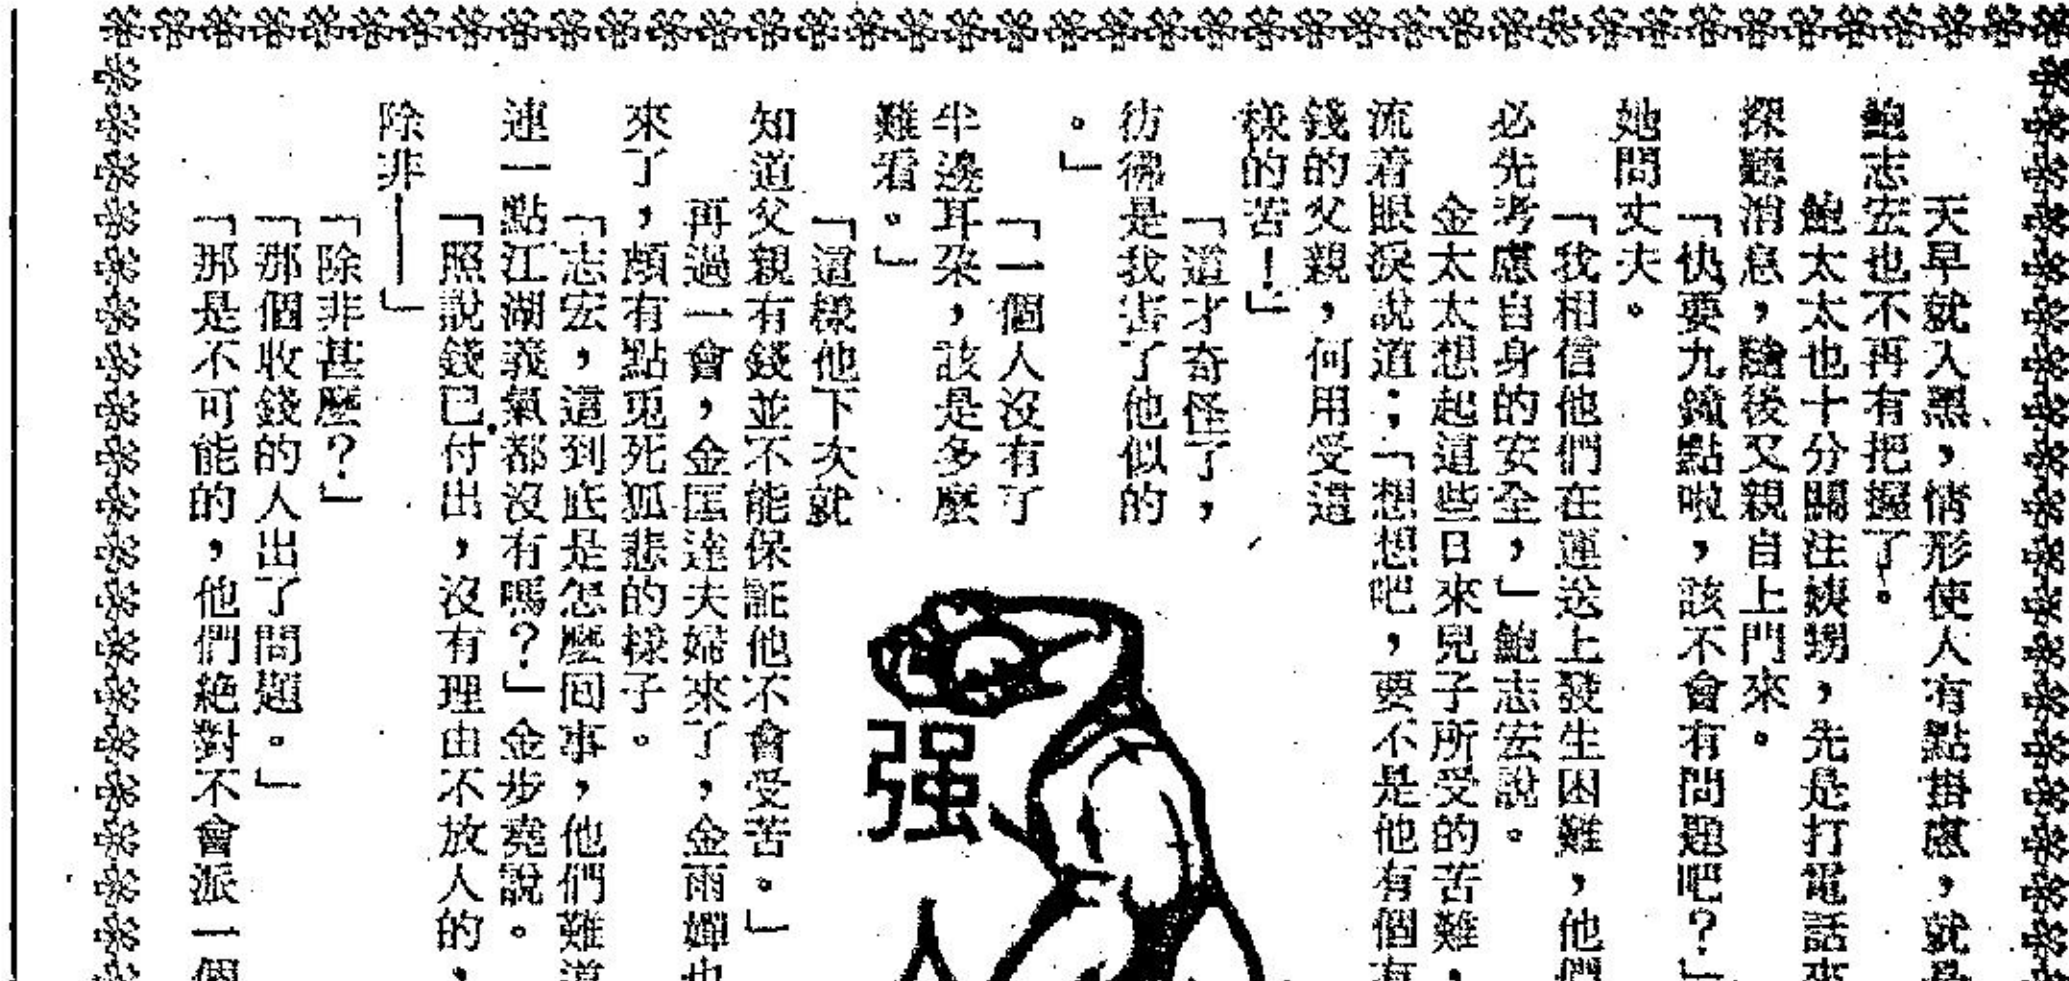 天早就入黑，情形使人有點掛慮，就是
鮑志宏也不再有把握了。
鮑太太也十分關注姨甥，先是打電話來
探聽消息，隨後又親自上門來。
「快要九鐘點啦，該不會有問題吧？」
她問丈夫。
「我相信他們在運送上發生困難，他們
必先考慮自身的安全，」鮑志宏說。
金太太想起這些日來兒子所受的苦難，
流着眼淚說道；「想想吧，要不是他有個有
錢的父親，何用受這
樣的苦！」
「這才奇怪了，
彷彿是我害了他似的
。」
「一個人沒有了
半邊耳朶，該是多麼
難看。」
「這樣他下次就
知道父親有錢並不能保証他不會受苦。」
再過一會，金匡達夫婦來了，金雨嬋也
來了，頗有點兎死狐悲的樣子。
「志宏，這到底是怎麼回事，他們難道
連一點江湖義氣都沒有嗎？」金步堯說。
「照說錢已付出，沒有理由不放人的，
除非——」
「除非甚麼？」
「那個收錢的人出了問題。」
「那是不可能的，他們絕對不會派一個
强
人